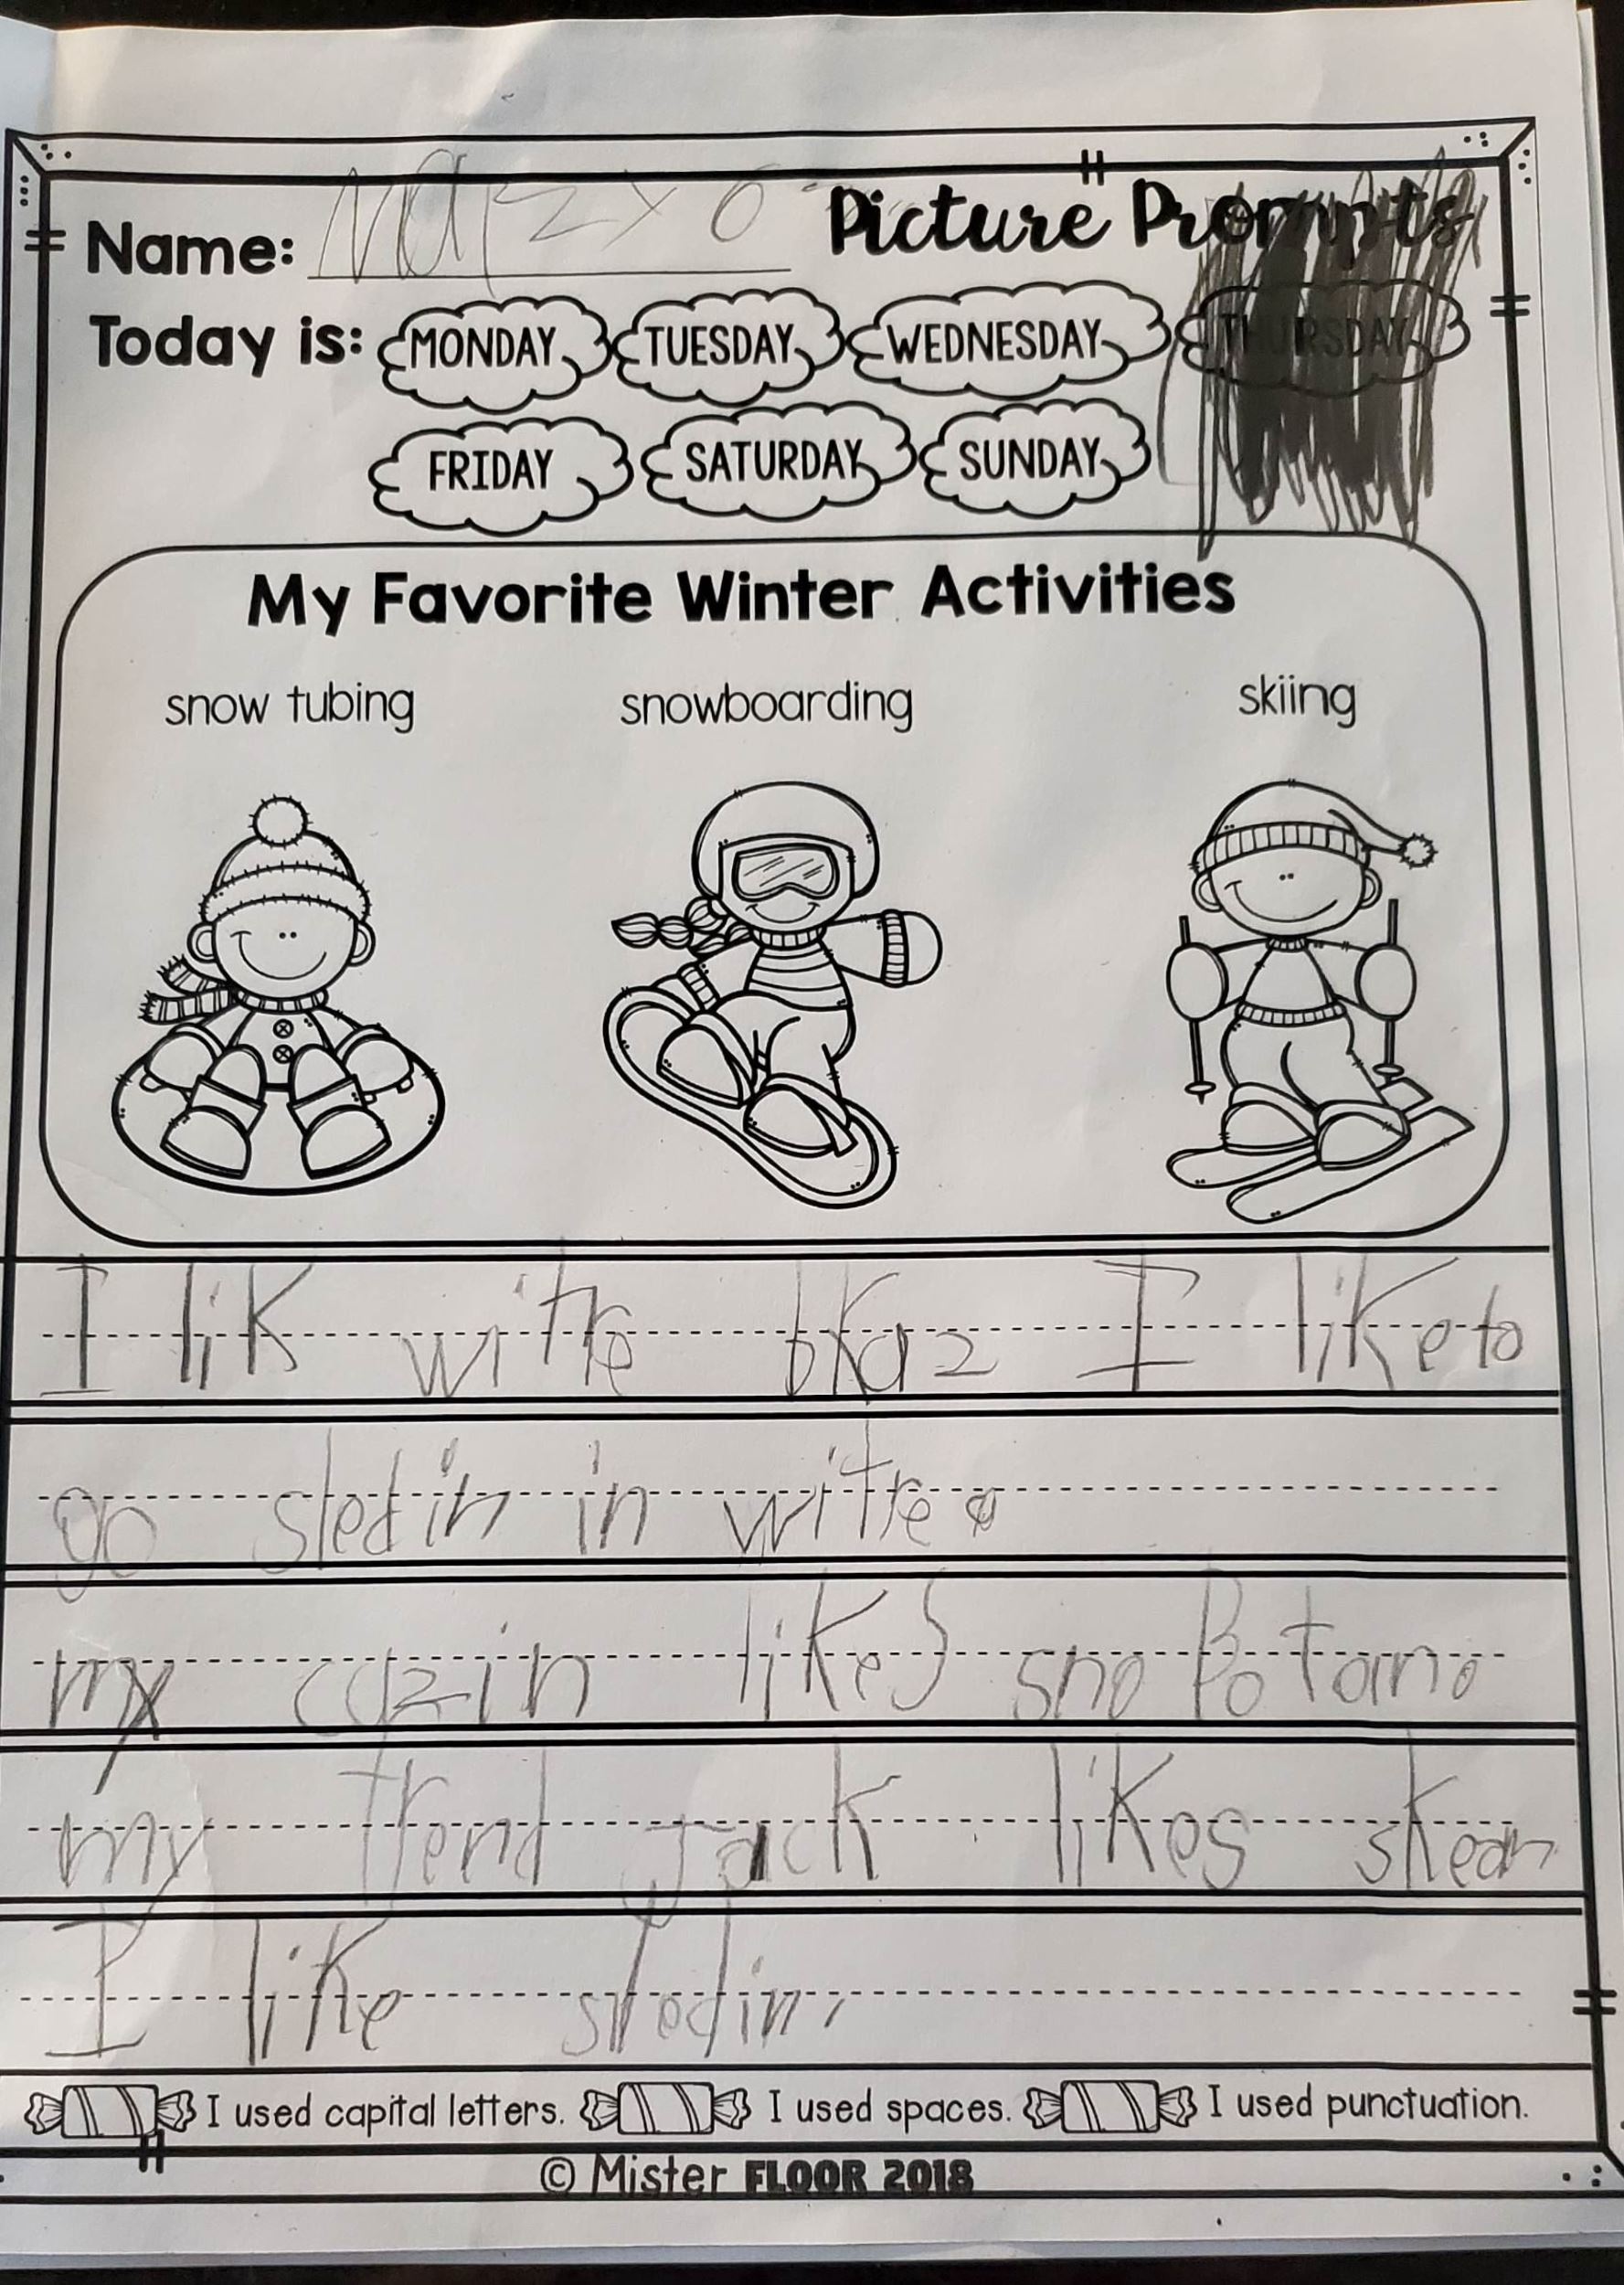 Name:
Picture Prompts
Today is: MONDAY TUESDAY WEDNESDAY THURSDAY
FRIDAY SATURDAY SUNDAY
My Favorite Winter Activities
snow tubing snowboarding skiing
I lik witre bkaz I like to
go sledin in witre.
my cazin likes sno Botano
my frend Jack likes skean
I like sledin.
I used capital letters. I used spaces. I used punctuation.
© Mister FLOOR 2018